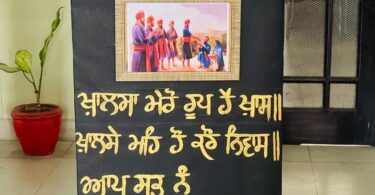 ਖ਼ਾਲਸਾ ਮੇਰੋ ਰੂਪ ਹੈ ਖ਼ਾਸ॥
ਖ਼ਾਲਸੇ ਮਹਿ ਹੌ ਕਰੌ ਨਿਵਾਸ॥
ਆਪ ਸਭ ਨੂੰ